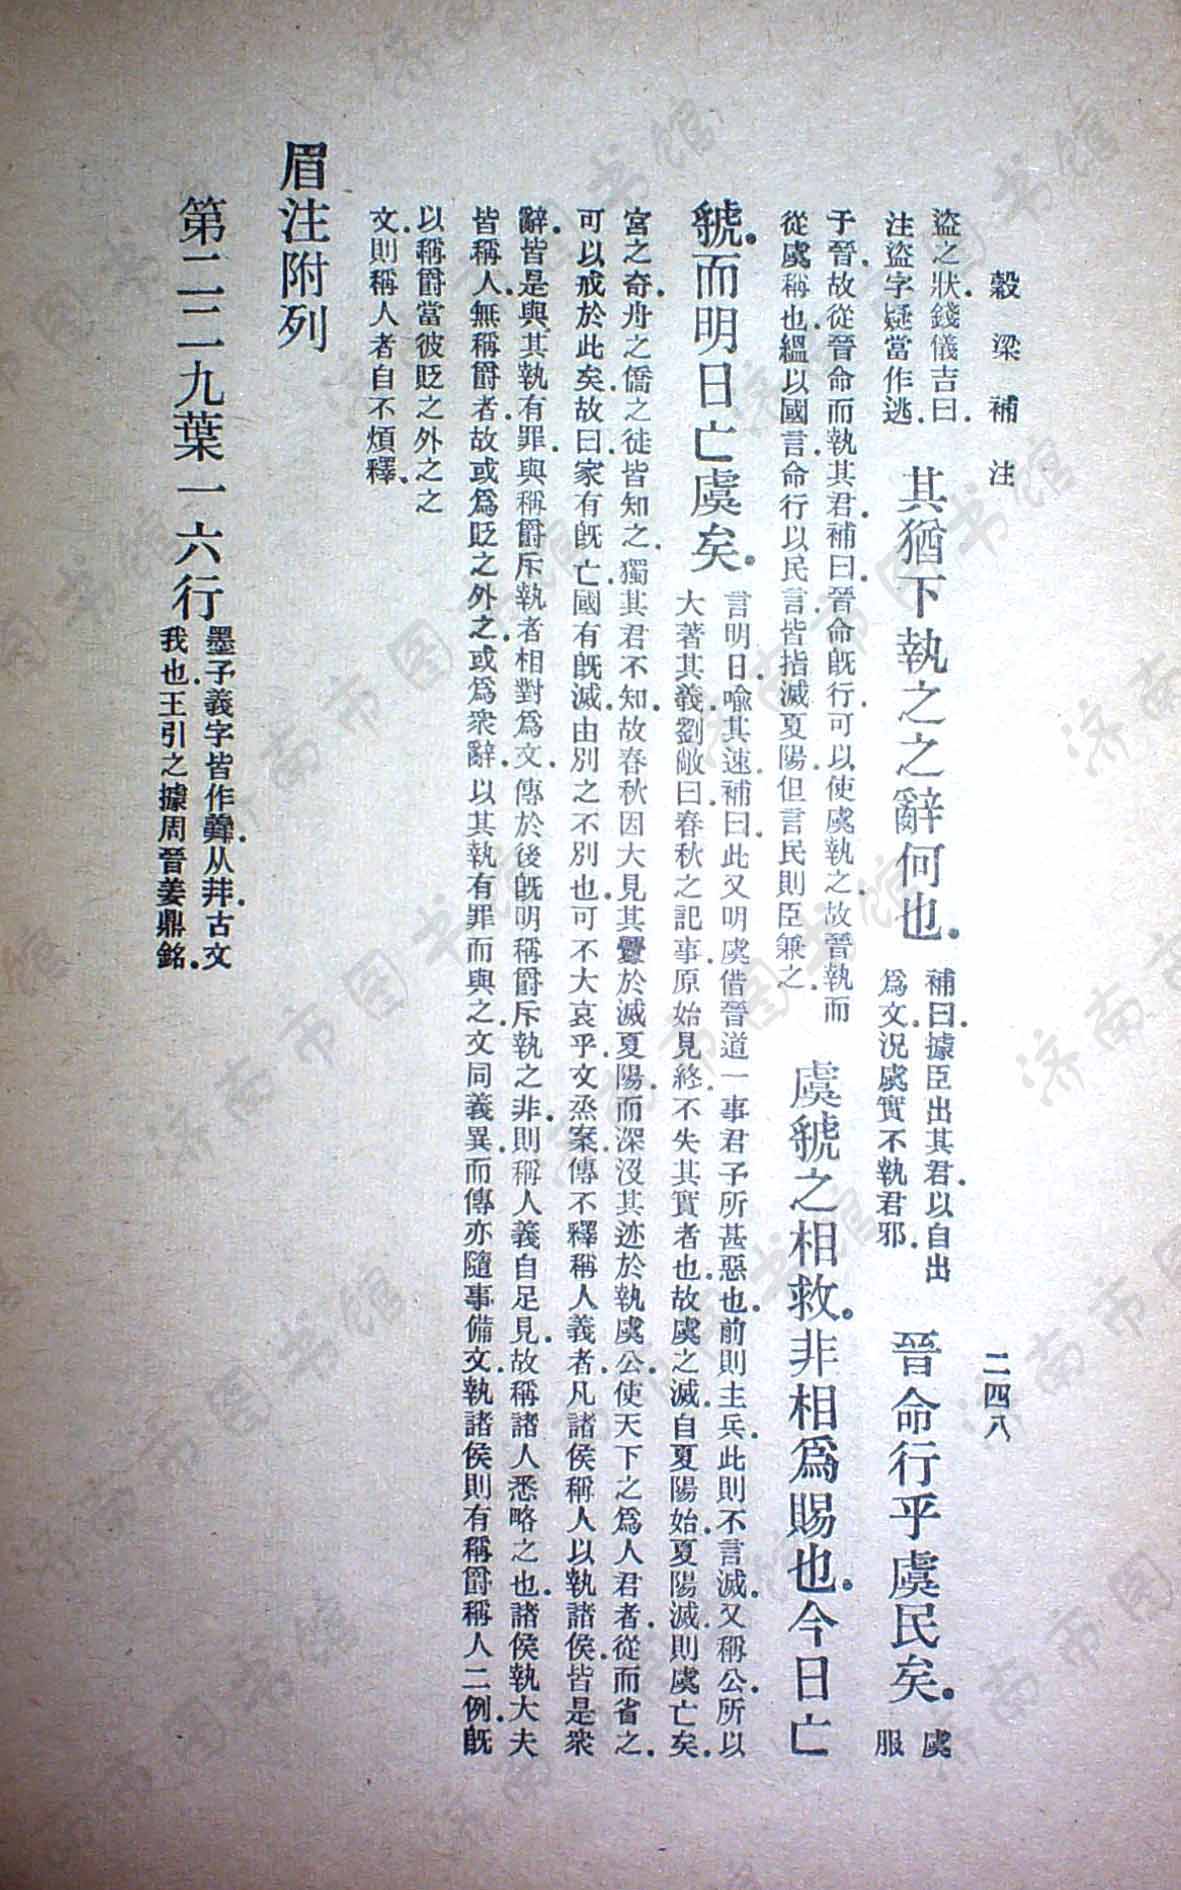 穀梁補注
二四八
盜之狀錢儀吉曰
注盜字疑當作逃
其猶下執之之辭何也
補曰據臣出其君以自出
爲文況虞實不執君邪
晉命行乎虞民矣
虞
服
于晉故從晉命而執其君補曰晉命旣行可以使虞執之故晉執而
從虞稱也緼以國言命行以民言皆指滅夏陽但言民則臣兼之
虞虢之相救非相爲賜也今日亡
虢而明日亡虞矣
言明日喻其速補曰此又明虞借晉道一事君子所甚惡也前則主兵此則不言滅又稱公所以
大著其義劉敞曰春秋之記事原始見終不失其實者也故虞之滅自夏陽始夏陽滅則虞亡矣
宮之奇舟之僑之徒皆知之獨其君不知故春秋因大見其釁於滅夏陽而深沒其迹於執虞公使天下之爲人君者從而省之
可以戒於此矣故曰家有旣亡國有旣滅由別之不別也可不大哀乎文烝案傳不釋稱人義者凡諸侯稱人以執諸侯皆是衆
辭皆是與其執有罪與稱爵斥執者相對爲文傳於後旣明稱爵斥執之非則稱人義自足見故稱諸人悉略之也諸侯執大夫
皆稱人無稱爵者故或爲貶之外之或爲衆辭以其執有罪而與之文同義異而傳亦隨事備文執諸侯則有稱爵稱人二例旣
以稱爵當彼貶之外之之
文則稱人者自不煩釋
眉注附列
第二二九葉一六行
墨子義字皆作羛从弗古文
我也王引之據周晉姜鼎銘
济南市图书馆